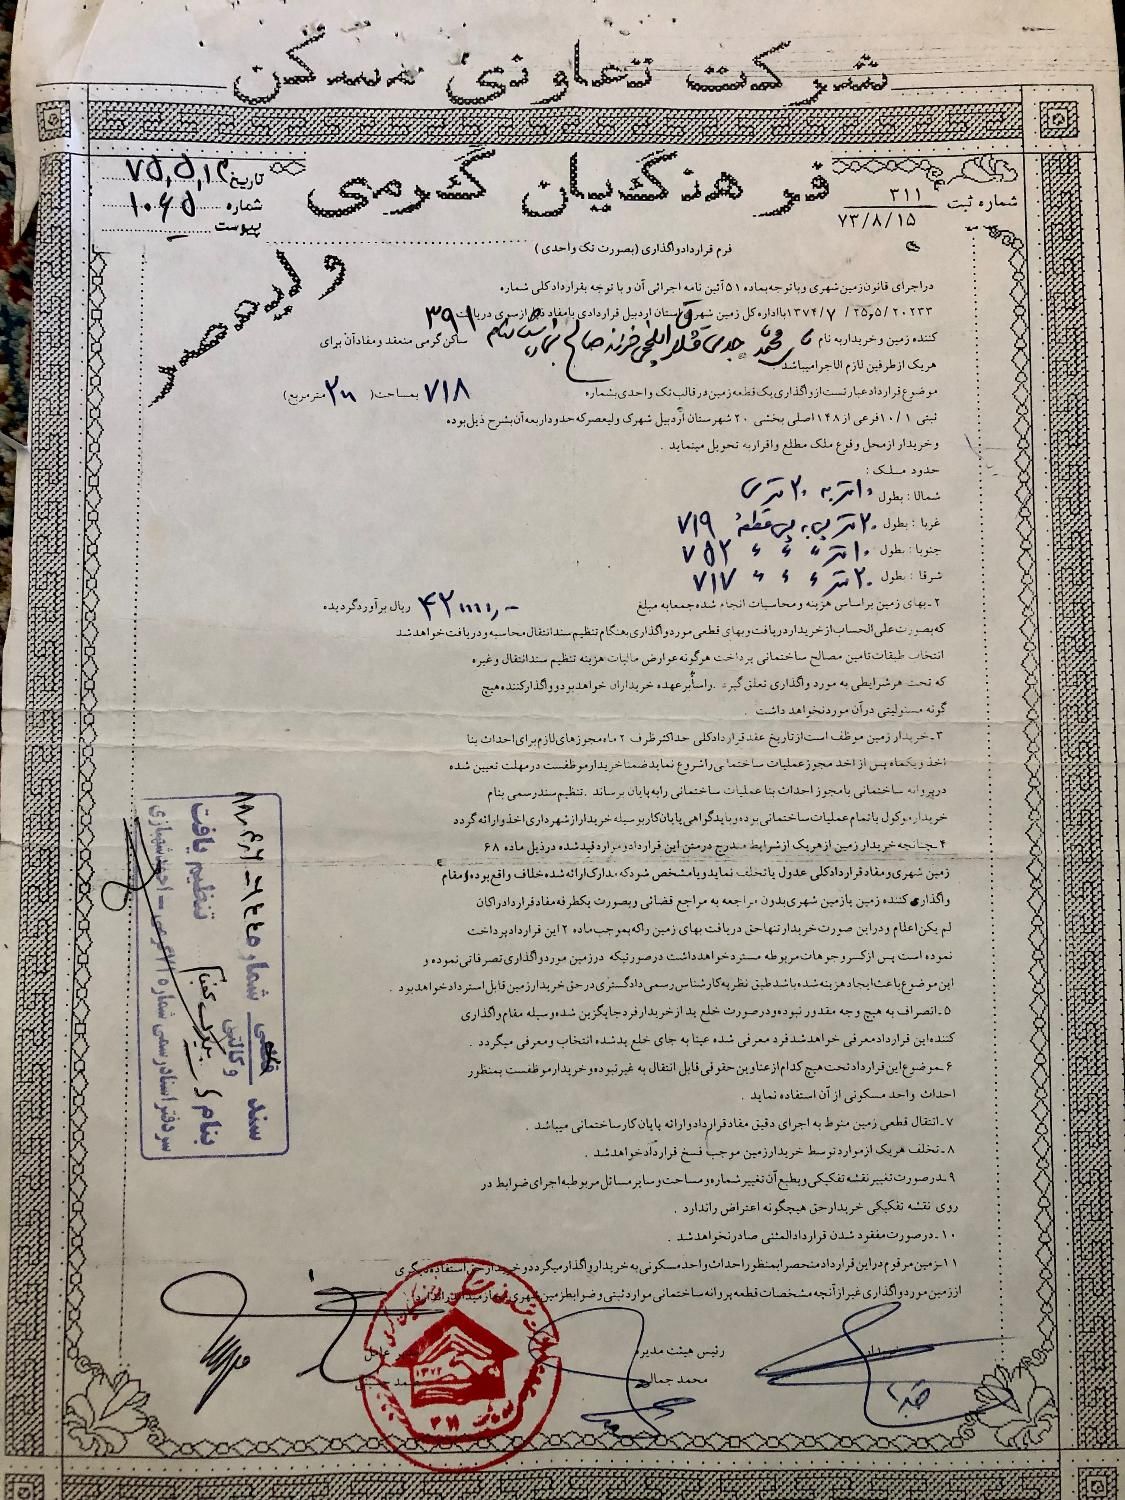 شرکت تعاونی مسکن
فرهنگیان گرمی
شماره ثبت ۳۱۱
۷۳/۸/۱۵
تاریخ ۷۵,۵,۱۴
شماره ۱۰۶۵
پیوست
فرم قرارداد واگذاری (بصورت تک واحدی)
ولیعصر
در اجرای قانون زمین شهری و با توجه بماده ۵۱ آئین نامه اجرائی آن و با توجه بقرارداد کلی شماره
۲۰۲۳۳ / ۲۵٫۵ / ۱۳۷۴/۷ با اداره کل زمین شهری استان اردبیل قراردادی بامفاد ذیل از سوی دریافت
کننده زمین و خریدار به نام محمد فرزند صالح بشماره شناسنامه ۳۹۱ ساکن گرمی منعقد و مفاد آن برای
هریک از طرفین لازم الاجرا میباشد
موضوع قرارداد عبارتست از واگذاری یک قطعه زمین در قالب تک واحدی بشماره ۷۱۸ بمساحت ( متر مربع)
ثبتی ۱۰/۱ فرعی از ۱۴۸ اصلی بخشی ۲۰ شهرستان اردبیل شهرک ولیعصر که حدود اربعه آن بشرح ذیل بوده
و خریدار از محل وقوع ملک مطلع و اقرار به تحویل مینماید .
حدود ملک :
شمالا : بطول ۱۰ متر به ۲۰ متری
غربا : بطول ۲۰ متر پی به پی قطعه ۷۱۹
جنوبا : بطول ۱۰ متر ״ ״ ״ ۷۵۲
شرقا : بطول ۲۰ متر ״ ״ ״ ۷۱۷
۲ـ بهای زمین بر اساس هزینه و محاسبات انجام شده جمعا به مبلغ ریال برآورد گردیده
که بصورت علی الحساب از خریدار دریافت و بهای قطعی مورد واگذاری بهنگام تنظیم سند انتقال محاسبه و دریافت خواهد شد
انتخاب طبقات تامین مصالح ساختمانی پرداخت هرگونه عوارض مالیات هزینه تنظیم سند انتقال و غیره
که تحت هر شرایطی به مورد واگذاری تعلق گیرد . راسا بر عهده خریداران خواهد بود و واگذار کننده هیچ
گونه مسئولیتی در آن مورد نخواهد داشت .
۳ـ خریدار زمین موظف است از تاریخ عقد قرارداد کلی حداکثر ظرف ۲ ماه مجوزهای لازم برای احداث بنا
اخذ و یکماه پس از اخذ مجوز عملیات ساختمانی را شروع نماید ضمنا خریدار موظفست در مهلت تعیین شده
در پروانه ساختمانی یا مجوز احداث بنا عملیات ساختمانی را به پایان برساند . تنظیم سند رسمی بنام
خریدار موکول به اتمام عملیات ساختمانی بوده و باید گواهی پایان کار بوسیله خریدار از شهرداری اخذ و ارائه گردد
۴ـ چنانچه خریدار زمین از هریک از شرایط مندرج در متن این قرارداد و موارد قید شده در ذیل ماده ۶۸
زمین شهری و مفاد قرارداد کلی عدول یا تخلف نماید و یا مشخص شود که مدارک ارائه شده خلاف واقع بوده و مقام
واگذاری کننده زمین یا زمین شهری بدون مراجعه به مراجع قضائی و بصورت یکطرفه مفاد قرارداد را کان
لم یکن اعلام و در این صورت خریدار تنها حق دریافت بهای زمین را که بموجب ماده ۲ این قرارداد پرداخت
نموده است پس از کسر وجوهات مربوطه مسترد خواهد داشت در صورتیکه در زمین مورد واگذاری تصرفاتی نموده و
این موضوع باعث ایجاد هزینه شده باشد طبق نظریه کارشناس رسمی دادگستری در حق خریدار زمین قابل استرداد خواهد بود .
۵ـ انصراف به هیچ وجه مقدور نبوده و در صورت خلع ید از خریدار فرد جایگزین شده وسیله مقام واگذاری
کننده این قرارداد معرفی خواهد شد فرد معرفی شده عینا به جای خلع ید شده انتخاب و معرفی میگردد .
۶ـ موضوع این قرارداد تحت هیچ کدام از عناوین حقوقی قابل انتقال به غیر نبوده و خریدار موظفست بمنظور
احداث واحد مسکونی از آن استفاده نماید .
۷ـ انتقال قطعی زمین منوط به اجرای دقیق مفاد قرارداد و ارائه پایان کار ساختمانی میباشد .
۸ـ تخلف هریک از موارد توسط خریدار زمین موجب فسخ قرارداد خواهد شد .
۹ـ در صورت تغییر نقشه تفکیکی و بطبع آن تغییر شماره و مساحت و سایر مسائل مربوط به اجرای ضوابط در
روی نقشه تفکیکی خریدار حق هیچگونه اعتراض را ندارد .
۱۰ـ در صورت مفقود شدن قرارداد المثنی صادر نخواهد شد .
۱۱ـ زمین مرقوم در این قرارداد منحصرا بمنظور احداث واحد مسکونی به خریدار واگذار میگردد و خریدار حق استفاده دیگری
از زمین مورد واگذاری غیر از آنچه مشخصات قطعه پروانه ساختمانی موارد ثبتی و ضوابط زمین شهری
رئیس هیئت مدیره
محمد جمالی
عامل
سند شماره
وکالتی
تنظیم یافت
بنام
سردفتر اسناد رسمی شماره ۷۱ گرمی - احد شهبازی